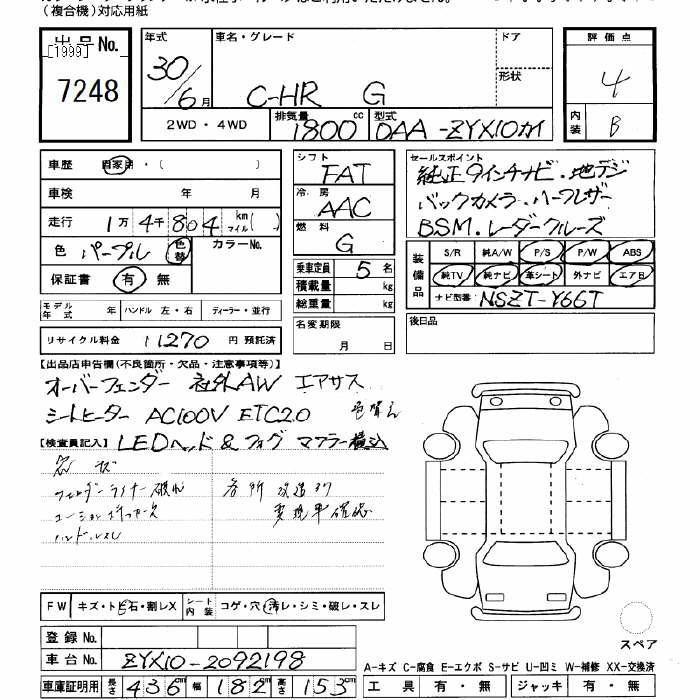 (複合機)対応用紙
出品No.
[1999]
7248
年式 車名・グレード ドア
30/6月 C-HR G 形状
2WD・4WD 排気量 1800cc 型式 DAA-ZYX10カイ
評価点
4
内装 B
車歴 自家用・( )
車検 年 月
走行 1万4千804km マイル( )
色 パープル 色替 カラーNo.
保証書 有 無
モデル年式 年 ハンドル 左・右 ディーラー・並行
リサイクル料金 11270円 預託済
シフト FAT
冷房 AAC
燃料 G
乗車定員 5名
積載量 kg
総重量 kg
名変期限
月 日
セールスポイント
純正9インチナビ・地デジ
バックカメラ・ハーフレザー
BSM・レーダークルーズ
装備品 S/R 純A/W P/S P/W ABS
純TV 純ナビ 革シート 外ナビ エアB
ナビ型番 NSZT-Y66T
後日品
【出品店申告欄(不良箇所・欠品・注意事項等)】
オーバーフェンダー 社外AW エアサス
シートヒーター AC100V ETC2.0 色替え
【検査員記入】LEDヘッド&フォグ マフラー積込
フェンダーライナー破れ 各所改造有
ハンドルスレ 要現車確認
FW キズ・トビ石・割レX シート内装 コゲ・穴・汚レ・シミ・破レ・スレ
登録No.
車台No. ZYX10-2092198
車庫証明用 長さ 436cm 幅 182cm 高さ 153cm
スペア
A-キズ C-腐食 E-エクボ S-サビ U-凹ミ W-補修 XX-交換済
工具 有・無 ジャッキ 有・無